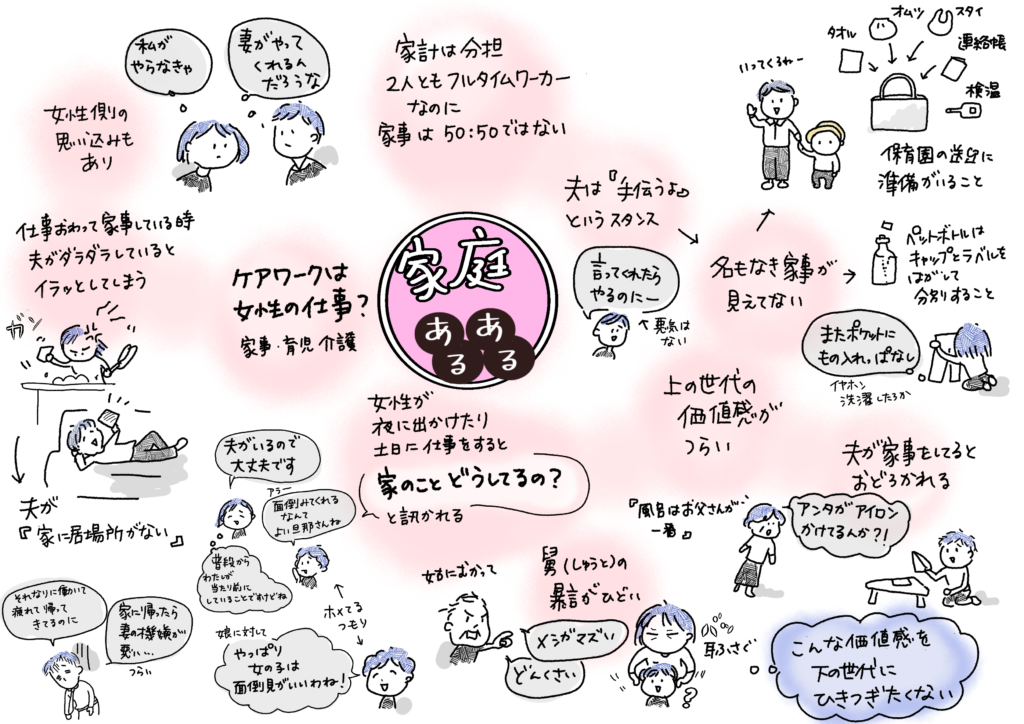 家庭
あるある
私が
やらなきゃ
妻がやって
くれるん
だろうな
女性側の
思い込みも
あり
家計は分担
2人ともフルタイムワーカー
なのに
家事は50:50ではない
いってくるねー
タオル
オムツ
スタイ
連絡帳
検温
保育園の送迎に
準備がいること
仕事おわって家事している時
夫がダラダラしていると
イラッとしてしまう
ガ
ケアワークは
女性の仕事?
家事・育児 介護
夫は『手伝うよ』
というスタンス
言ってくれたら
やるのにー
悪気は
ない
名もなき家事が
見えてない
ペットボトルは
キャップとラベルを
はがして
分別すること
またポケットに
もの入れっぱなし
イヤホン
洗濯したろか
上の世代の
価値感が
つらい
女性が
夜に出かけたり
土日に仕事をすると
家のこと どうしてるの?
と訊かれる
夫がいるので
大丈夫です
アラー
面倒みてくれる
なんて
よい旦那さんね
普段から
わたしが
当たり前に
していることですけどね
ホメてる
つもり
娘に対して
やっぱり
女の子は
面倒見がいいわね!
夫が
『家に居場所がない』
それなりに働いて
疲れて帰って
きてるのに
家に帰ったら
妻の機嫌が
悪い…
つらい
舅(しゅうと)の
暴言がひどい
姑にむかって
メシがマズい
どんくさい
耳ふさぐ
?
夫が家事をしてると
おどろかれる
『風呂はお父さんが
一番』
アンタがアイロン
かけてるんか?!
こんな価値感を
下の世代に
ひきつぎたくない